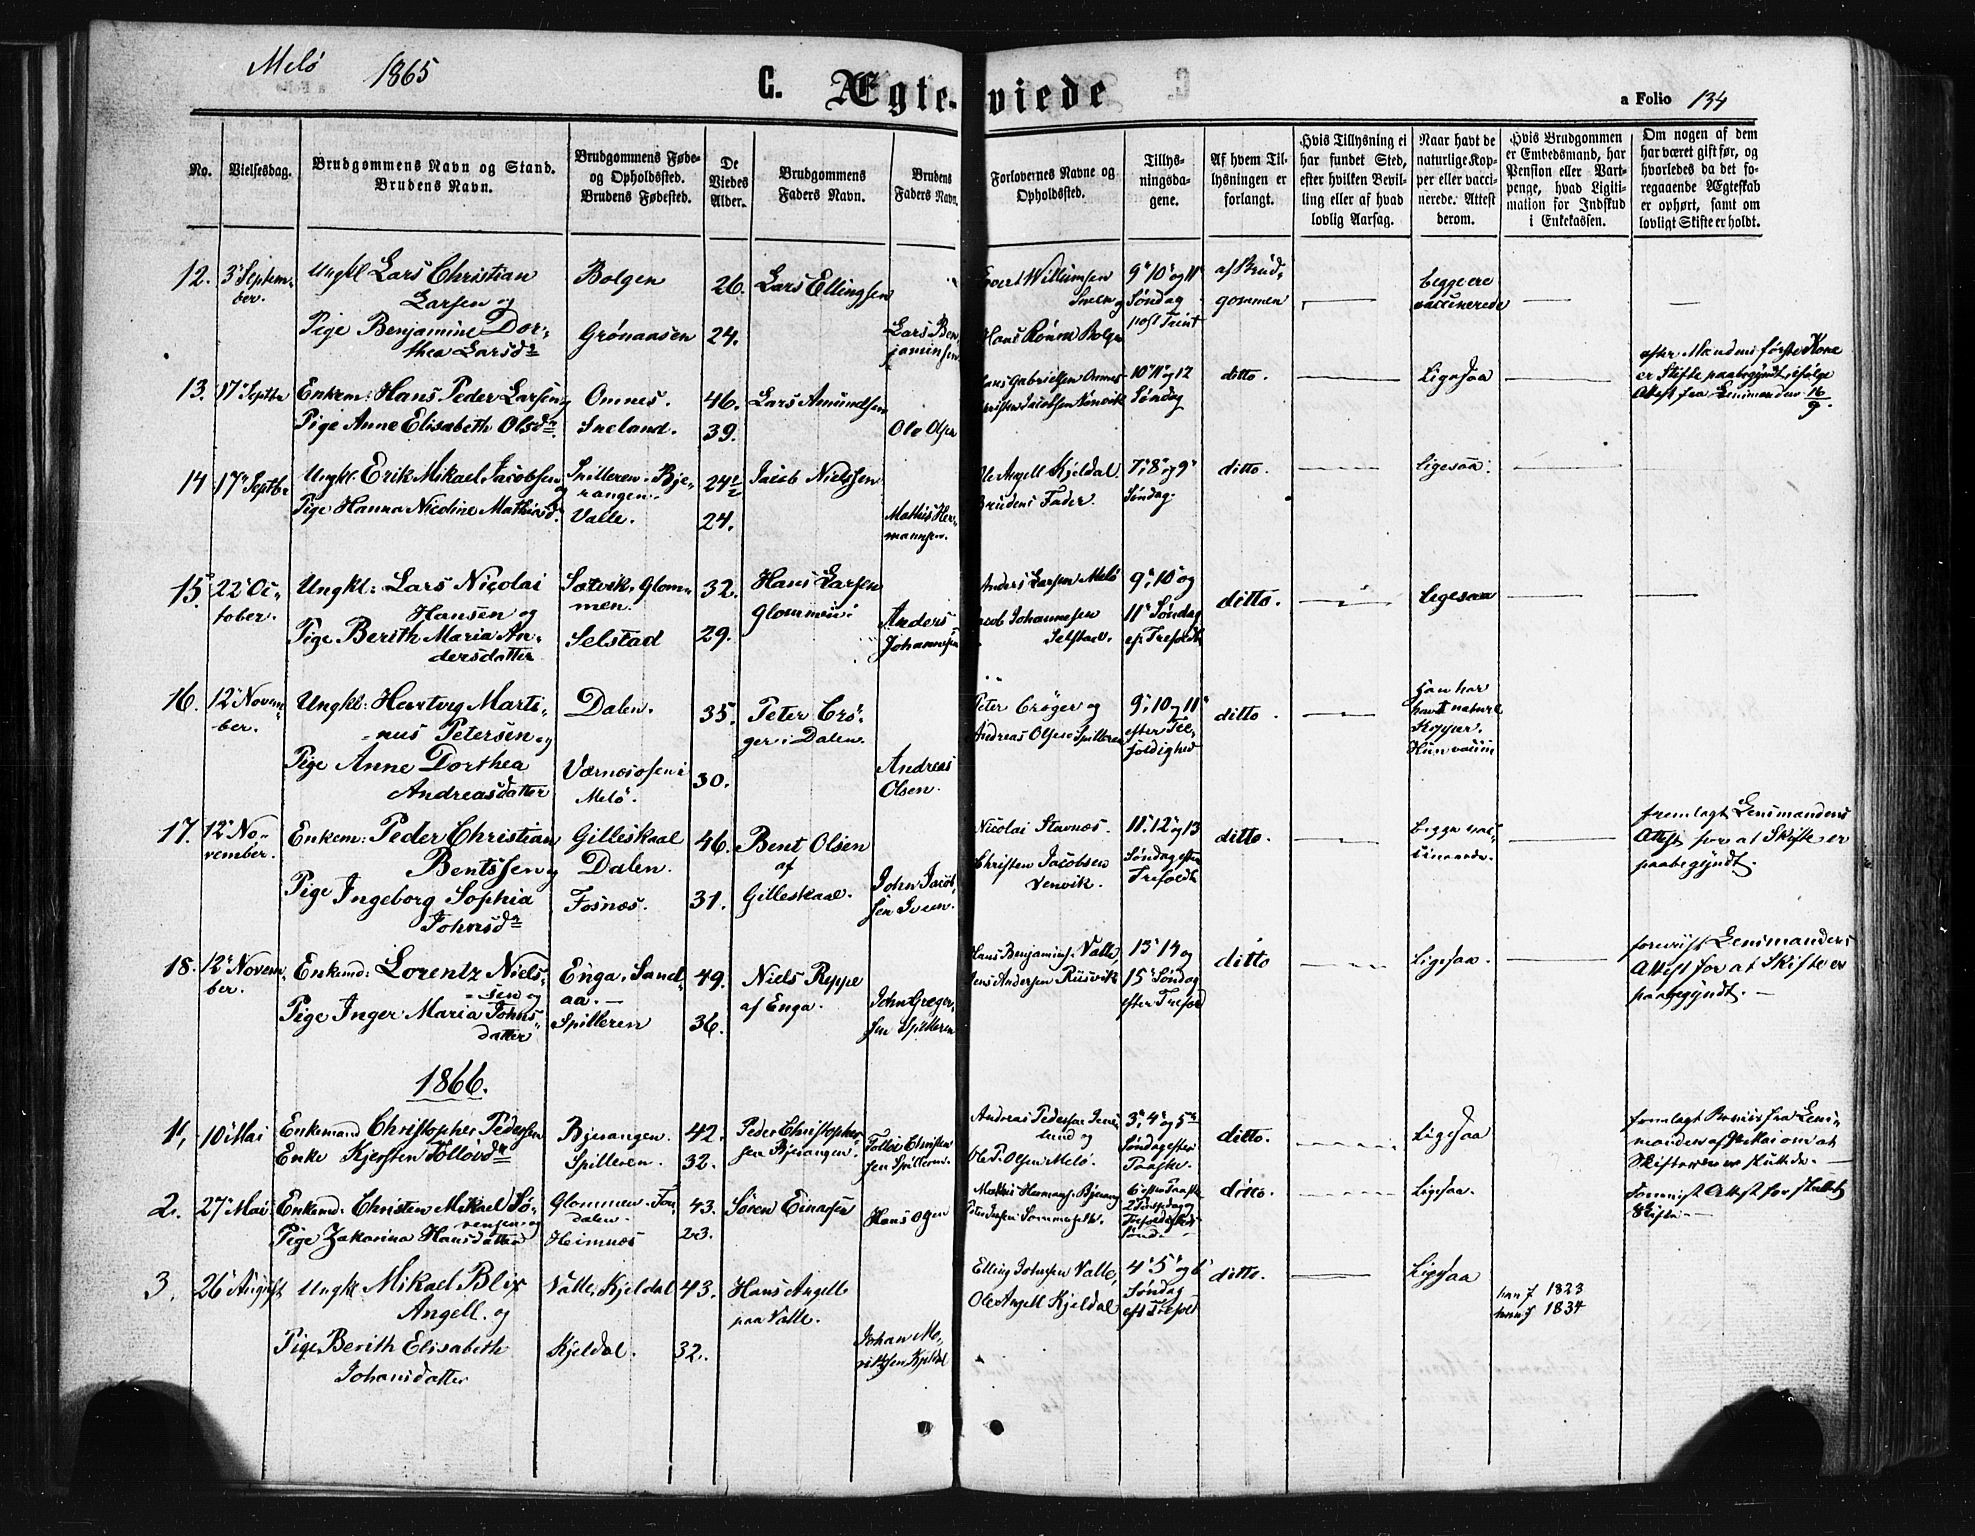 Melö 1865
C. Ægte-viede
a Folio 134
No.
Vielsesdag.
Brudgommens Navn og Stand.
Brudens Navn.
Brudgommens Føde-
og Opholdssted.
Brudens Fødested.
De
Viedes
Alder.
Brudgommens
Faders Navn.
Brudens
Faders Navn.
Forlovernes Navne og
Opholdssted.
Tillys-
ningsda-
gene.
Af hvem Til-
lysningen er
forlangt.
Hvis Tillysning ei
har fundet Sted,
efter hvilken Bevil-
ling eller af hvad
lovlig Aarsag.
Naar havt de
naturlige Kop-
per eller vacci-
nerede. Attest
derom.
Hvis Brudgommen
er Embedsmand, har
Pension eller Vart-
penge, hvad Ligiti-
mation for Indskud
i Enkekassen.
Om nogen af dem
har været gift før, og
hvorledes da det fo-
regaaende Ægteskab
er ophørt, samt om
lovligt Skifte er holdt.
12. 3' Septem-
ber.
Ungkl Lars Christian
Larsen og
Pige Benjamine Dor-
thea Larsd
Bolgen
Grönaasen
26.
24.
Lars Ellingsen
Lars Ben-
jaminsen
Evert Willumsen
Sneen og
Hans Bolgen
9' 10' og 11'
Søndag
post Trinit
af Brud-
gommen
begge ere
vaccinerede
13. 17' Septbr
Enkem: Hans Peder Larsen og
Pige Anne Elisabeth Olsd.
Omnes.
Sneland.
46.
39.
Lars Amundsen
Ole Olsen
Hans Gabrielsen Omnes
Christen Jacobsen Venvik
10' 11' og 12
Søndag
ditto.
Ligesaa
efter Mandens første Kone
er Skifte paabegyndt, ifølge
Attest fra Lensmanden 16/9.
14 17' Septbr
Ungkl. Erik Mikael Jacobsen og
Pige Hanna Nicoline Mathisd.
Spilleren. Bje-
rangen.
Valle.
24½
24.
Jacob Nielssen
Mathis Her-
mannsen.
Ole Angell Kjeldal.
Brudens Fader.
7' 8' og 9'
Søndag.
ditto.
Ligesaa.
15. 22' Oc-
tober.
Ungkl: Lars Nicolai
Hansen og
Pige Berith Maria An-
dersdatter
Sætvik. Glom-
men.
Selstad
32.
29.
Hans Larsen
Glommen.
Anders
Johannesen
Anders Larsen Melö
Jacob Johannesen
Selstad.
9' 10' og
11' Søndag
ef. Trefoldh
ditto.
Ligesaa
16. 12' Novem-
ber.
Ungkl: Hertvig Marti-
nus Petersen og
Pige Anne Dorthea
Andreasdatter
Dalen.
Værnæsosen i
Melö.
35.
30.
Peter Crö-
ger i Dalen.
Andreas
Olsen.
Peter Cröger og
Andreas Olsen Spilleren
9' 10 og 11'
efter Tre-
foldighed
ditto.
Han har
havt naturl
Kopper.
Hun vaccin
17. 12' No-
vember.
Enkem: Peder Christian
Bentssen og
Pige Ingeborg Sophia
Johnsd
Gilleskaal
Dalen.
Fosnæs.
46.
31.
Bent Olsen
af
Gilleskaal.
John Jacob-
sen
Nicolai Stavnæs.
Christen Jacobsen
Venvik.
11' 12' og 13
Søndag efter
Trefoldh
ditto.
begge vac-
cinerede.
fremlagt Lensmandens
Attest for at Skifte er
paabegyndt.
18. 12' Novem-
ber.
Enkemd: Lorentz Niels-
sen og
Pige Inger Maria Johns-
datter
Enga. Sand-
aa.
Spilleren
49.
36.
Niels Reppe
af Enga.
John Greger-
sen Spilleren
Hans Benjamins. Valle,
Jens Andersen Riisvik
13' 14 og
15' Søndag
efter Trefold
ditto
Ligesaa.
foreviist Lensmandens
Attest for at Skifte er
paabegyndt.
1866.
1, 10' Mai
Enkemand Christopher Pedersen
Enke Kjersten Follovd
Bjerangen.
Spilleren.
42.
32.
Peder Christopher-
sen Bjerangen.
Follov Christen
sen Spilleren.
Andreas Pedersen
og
Ole P. Olsen Melö.
3' 4' og 5te
Søndag efter
Paaske.
ditto.
Ligesaa
fremlagt Beviis fra Lens-
manden af Mai om at
Skifterne er sluttede.
2. 27' Mai
Enkemd: Christen Mikael Sö-
rensen og
Pige Zakarina Hansdatter
Glommen. Fon-
dalen.
Heimnæs
43.
23.
Sören Einarsen
Hans
Mathis Hermans. Bjerang
6' efter Paaske
ditto.
Ligesaa.
Skifte
3. 26' August
Ungkl Mikael Blix
Angell. og
Pige Berith Elisabeth
Johansdatter
Valle. Kjeldal
Kjeldal.
43.
32.
Hans Angell
paa Valle.
Johan Mo-
ritsen Kjeldal
Elling Johnsen Valle,
Ole Angell Kjeldal
4' 5' og 6'
Søndag
eft Trefold
ditto.
Ligesaa
han f 1823
hun f 1834